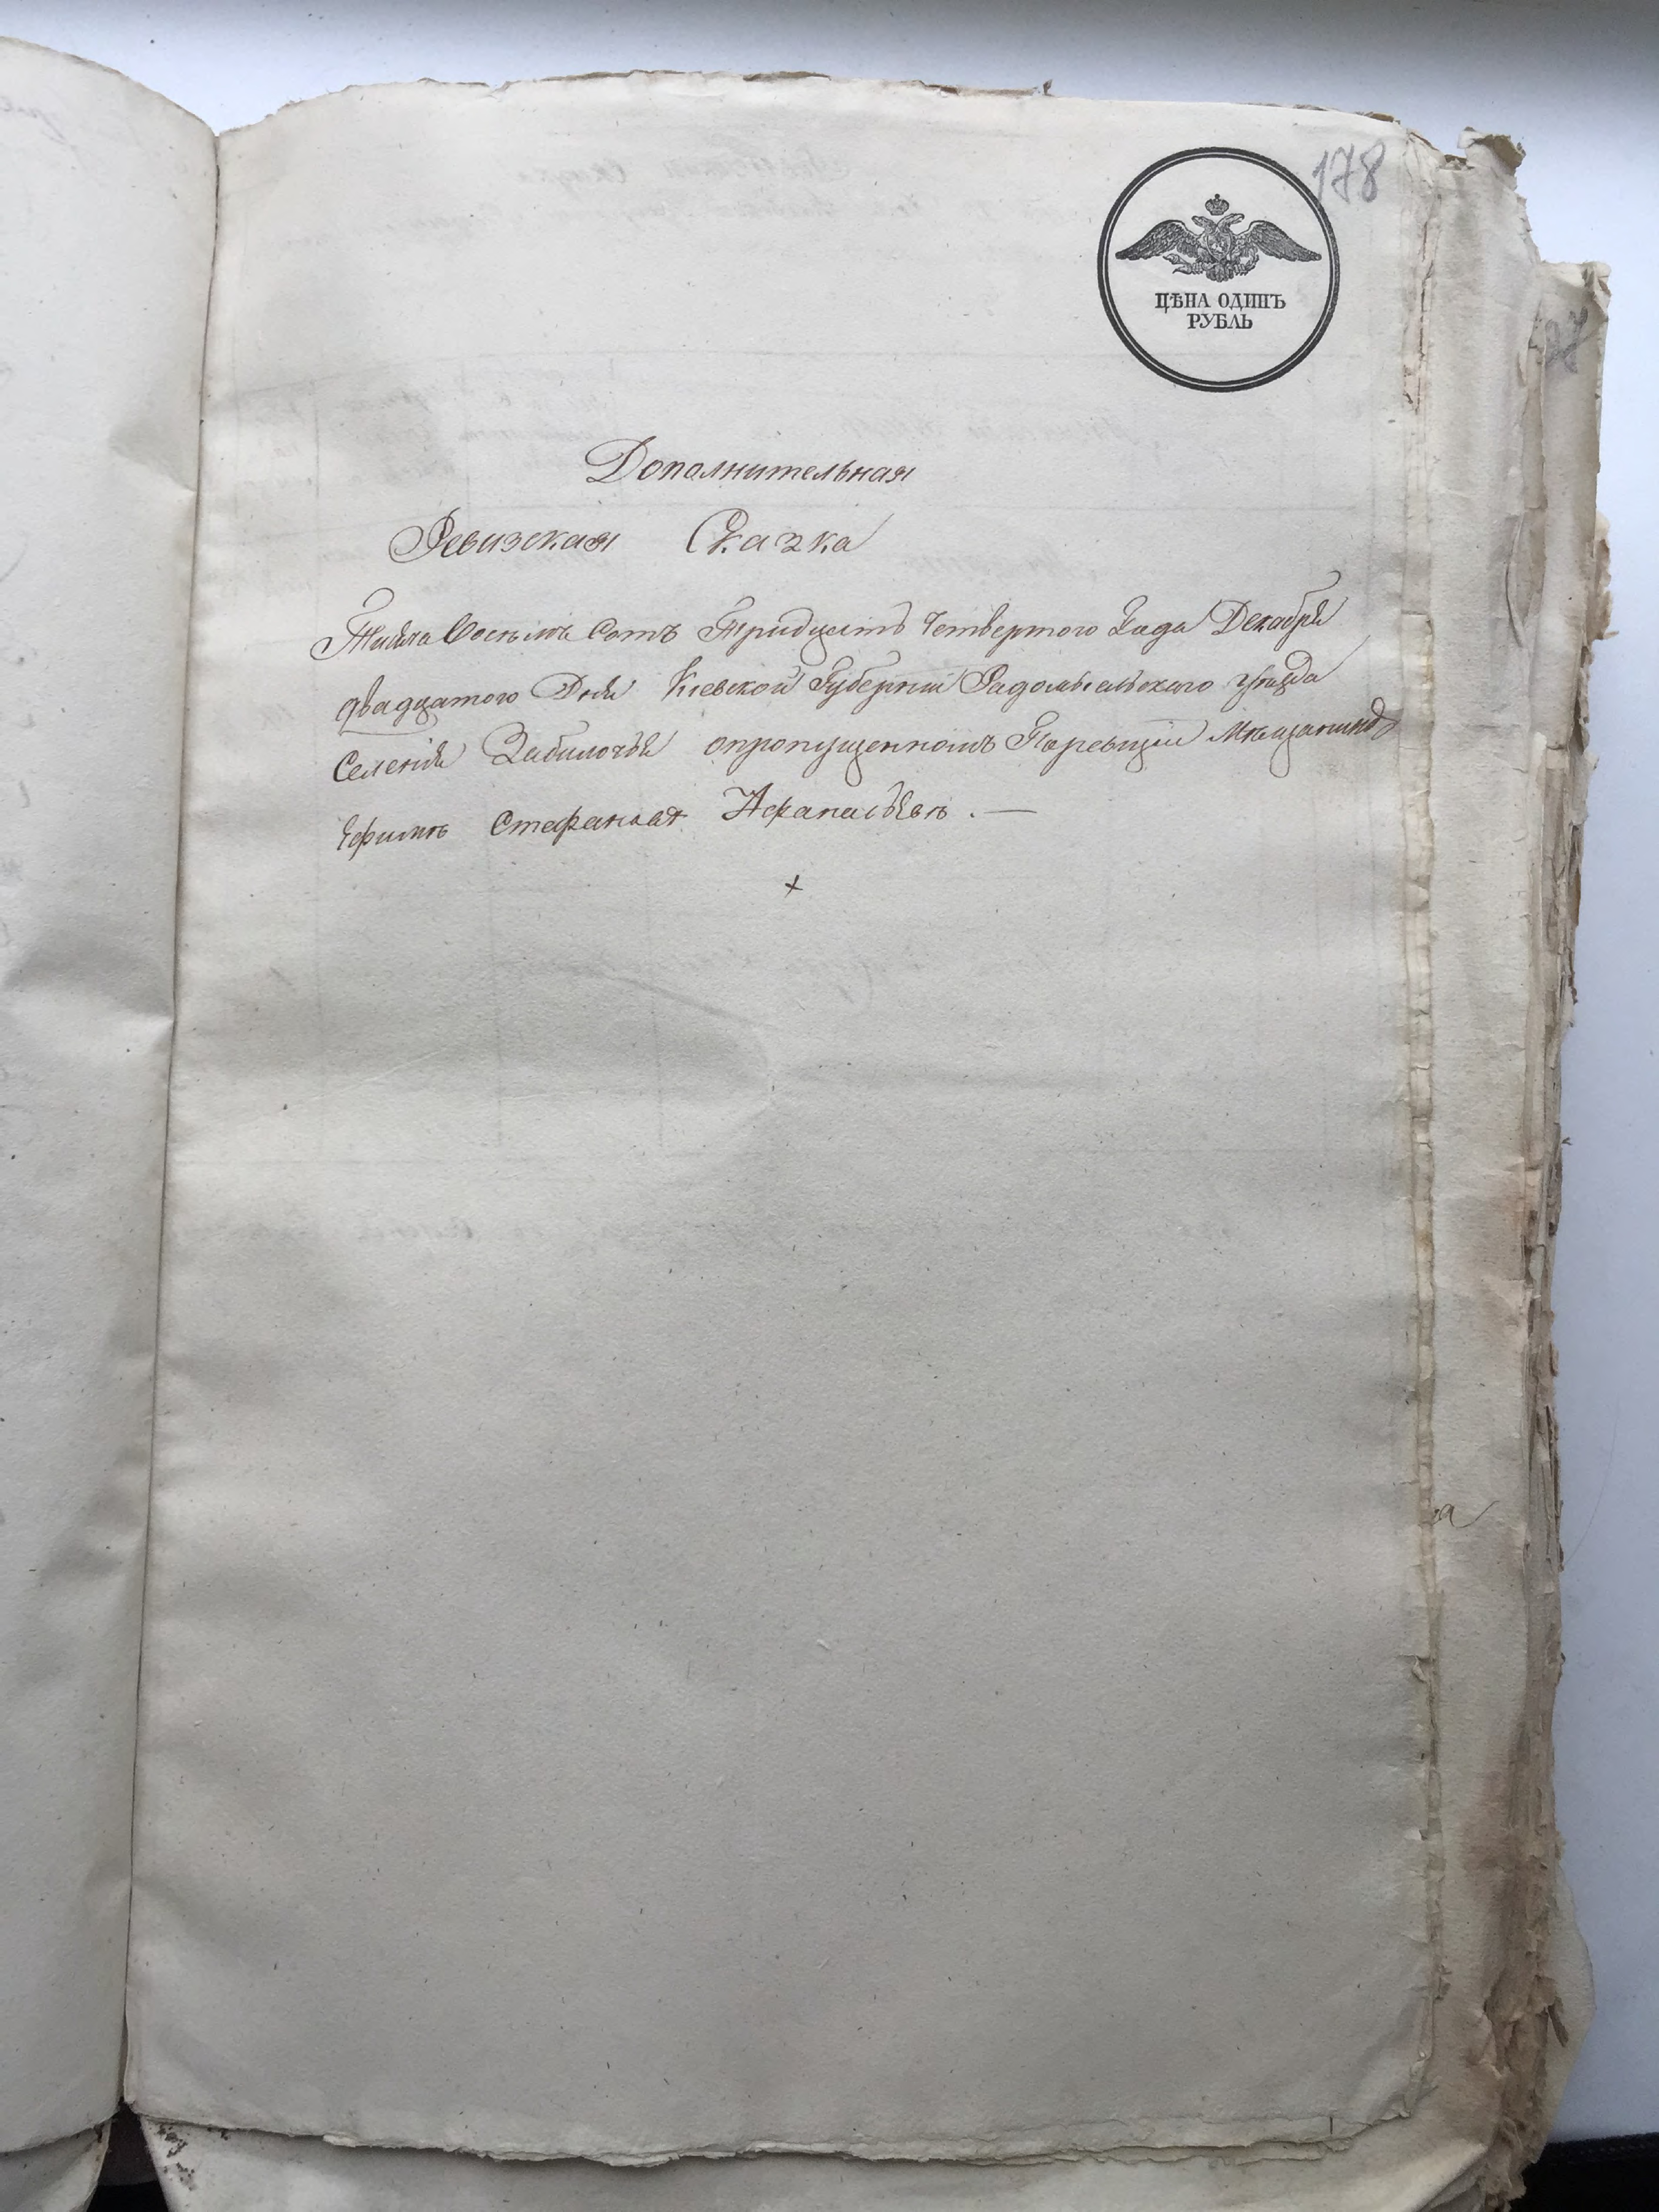 178
ЦѢНА ОДИНЪ
РУБЛЬ
Дополнительная
Ревизская Сказка
Тысяча Восемь Сотъ Тридцать Четвертого Года Декабря
двадцатого Дня Киевской Губернии Радомысльского уѣзда
Селения Забилочья опропущенномъ Поревизіи Мѣщанинѣ
Ефимѣ Стефановѣ Афанасьевѣ . —